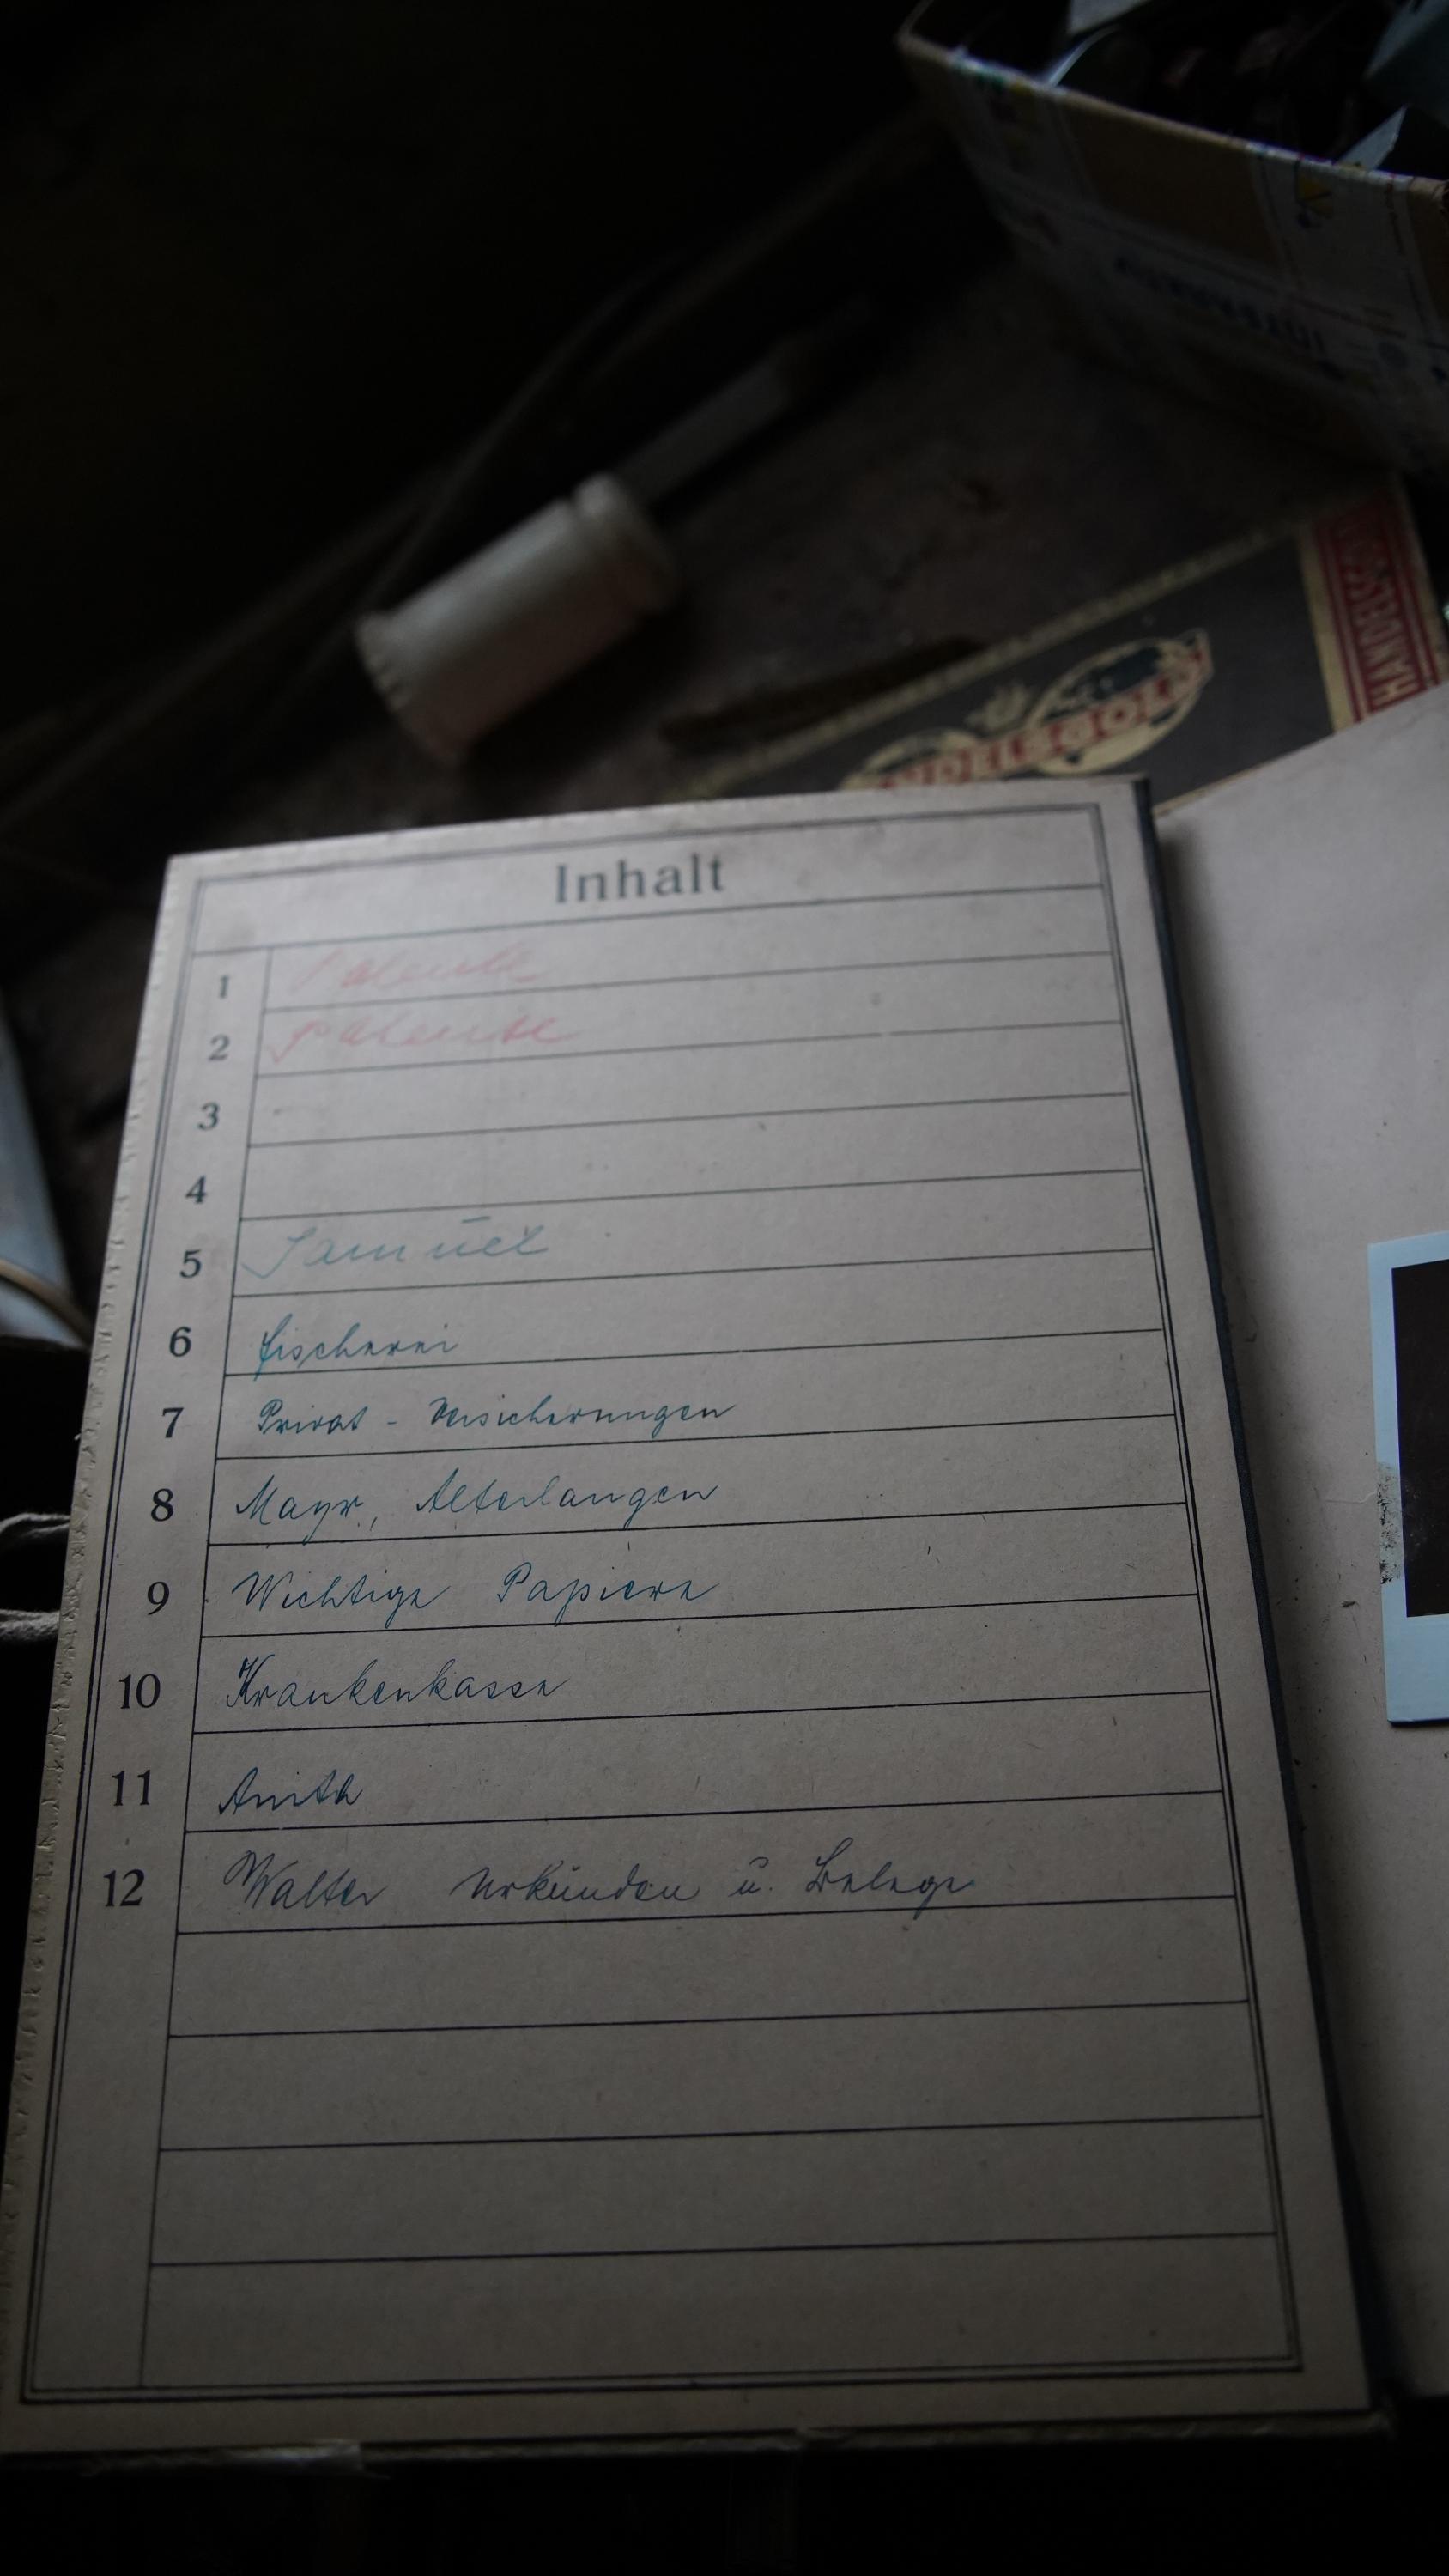 Inhalt
1 Patente
2 Patente
3
4
5 Samuel
6 Fischerei
7 Privat - Versicherungen
8 Mayr, Alterlangen
9 Wichtige Papiere
10 Krankenkasse
11 Anita
12 Walter Urkunden u. Belege